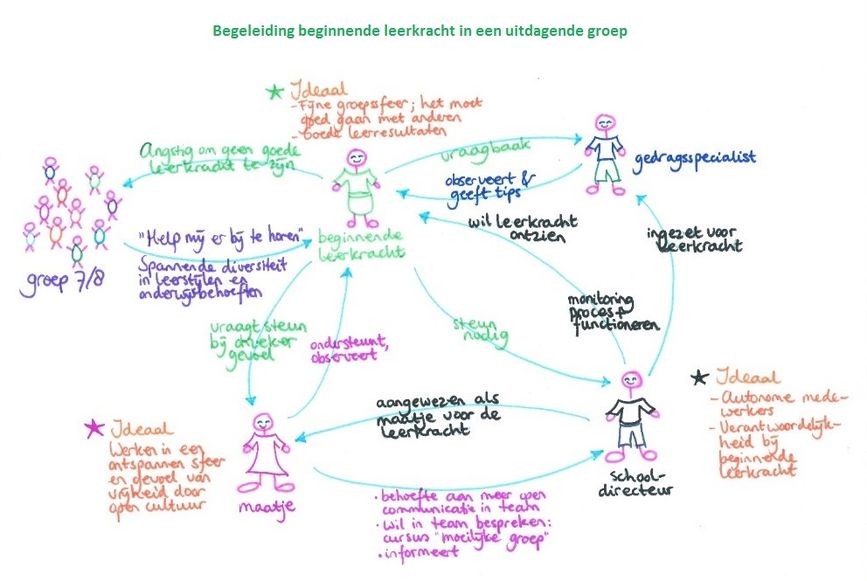 Begeleiding beginnende leerkracht in een uitdagende groep
Ideaal
- Fijne groepssfeer; het moet
goed gaan met anderen
- Goede leerresultaten
Angstig om geen goede
leerkracht te zijn
vraagbaak
gedragsspecialist
observeert &
geeft tips
"Help mij er bij te horen"
beginnende
leerkracht
wil leerkracht
ontzien
ingezet voor
leerkracht
groep 7/8
Spannende diversiteit
in leerstijlen en
onderwijsbehoeften
vraagt steun
bij onzeker
gevoel
ondersteunt,
observeert
steun
nodig
monitoring
proces &
functioneren
Ideaal
- Autonome mede-
werkers
- Verantwoordelijk-
heid bij
beginnende
leerkracht
aangewezen als
maatje voor de
leerkracht
Ideaal
Werken in een
ontspannen sfeer
en gevoel van
vrijheid door
open cultuur
maatje
school-
directeur
• behoefte aan meer open
communicatie in team
• Wil in team bespreken:
cursus "moeilijke groep"
• informeert